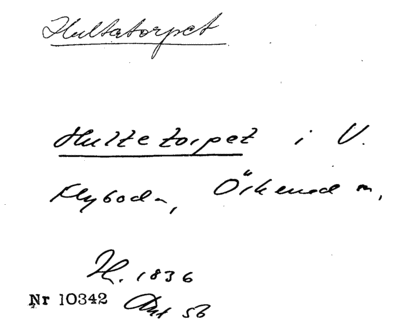 Hultatorpet
Hultetorpet i V.
Flyboda, Örkened sn,
H. 1836
Nr 10342 Ant 56